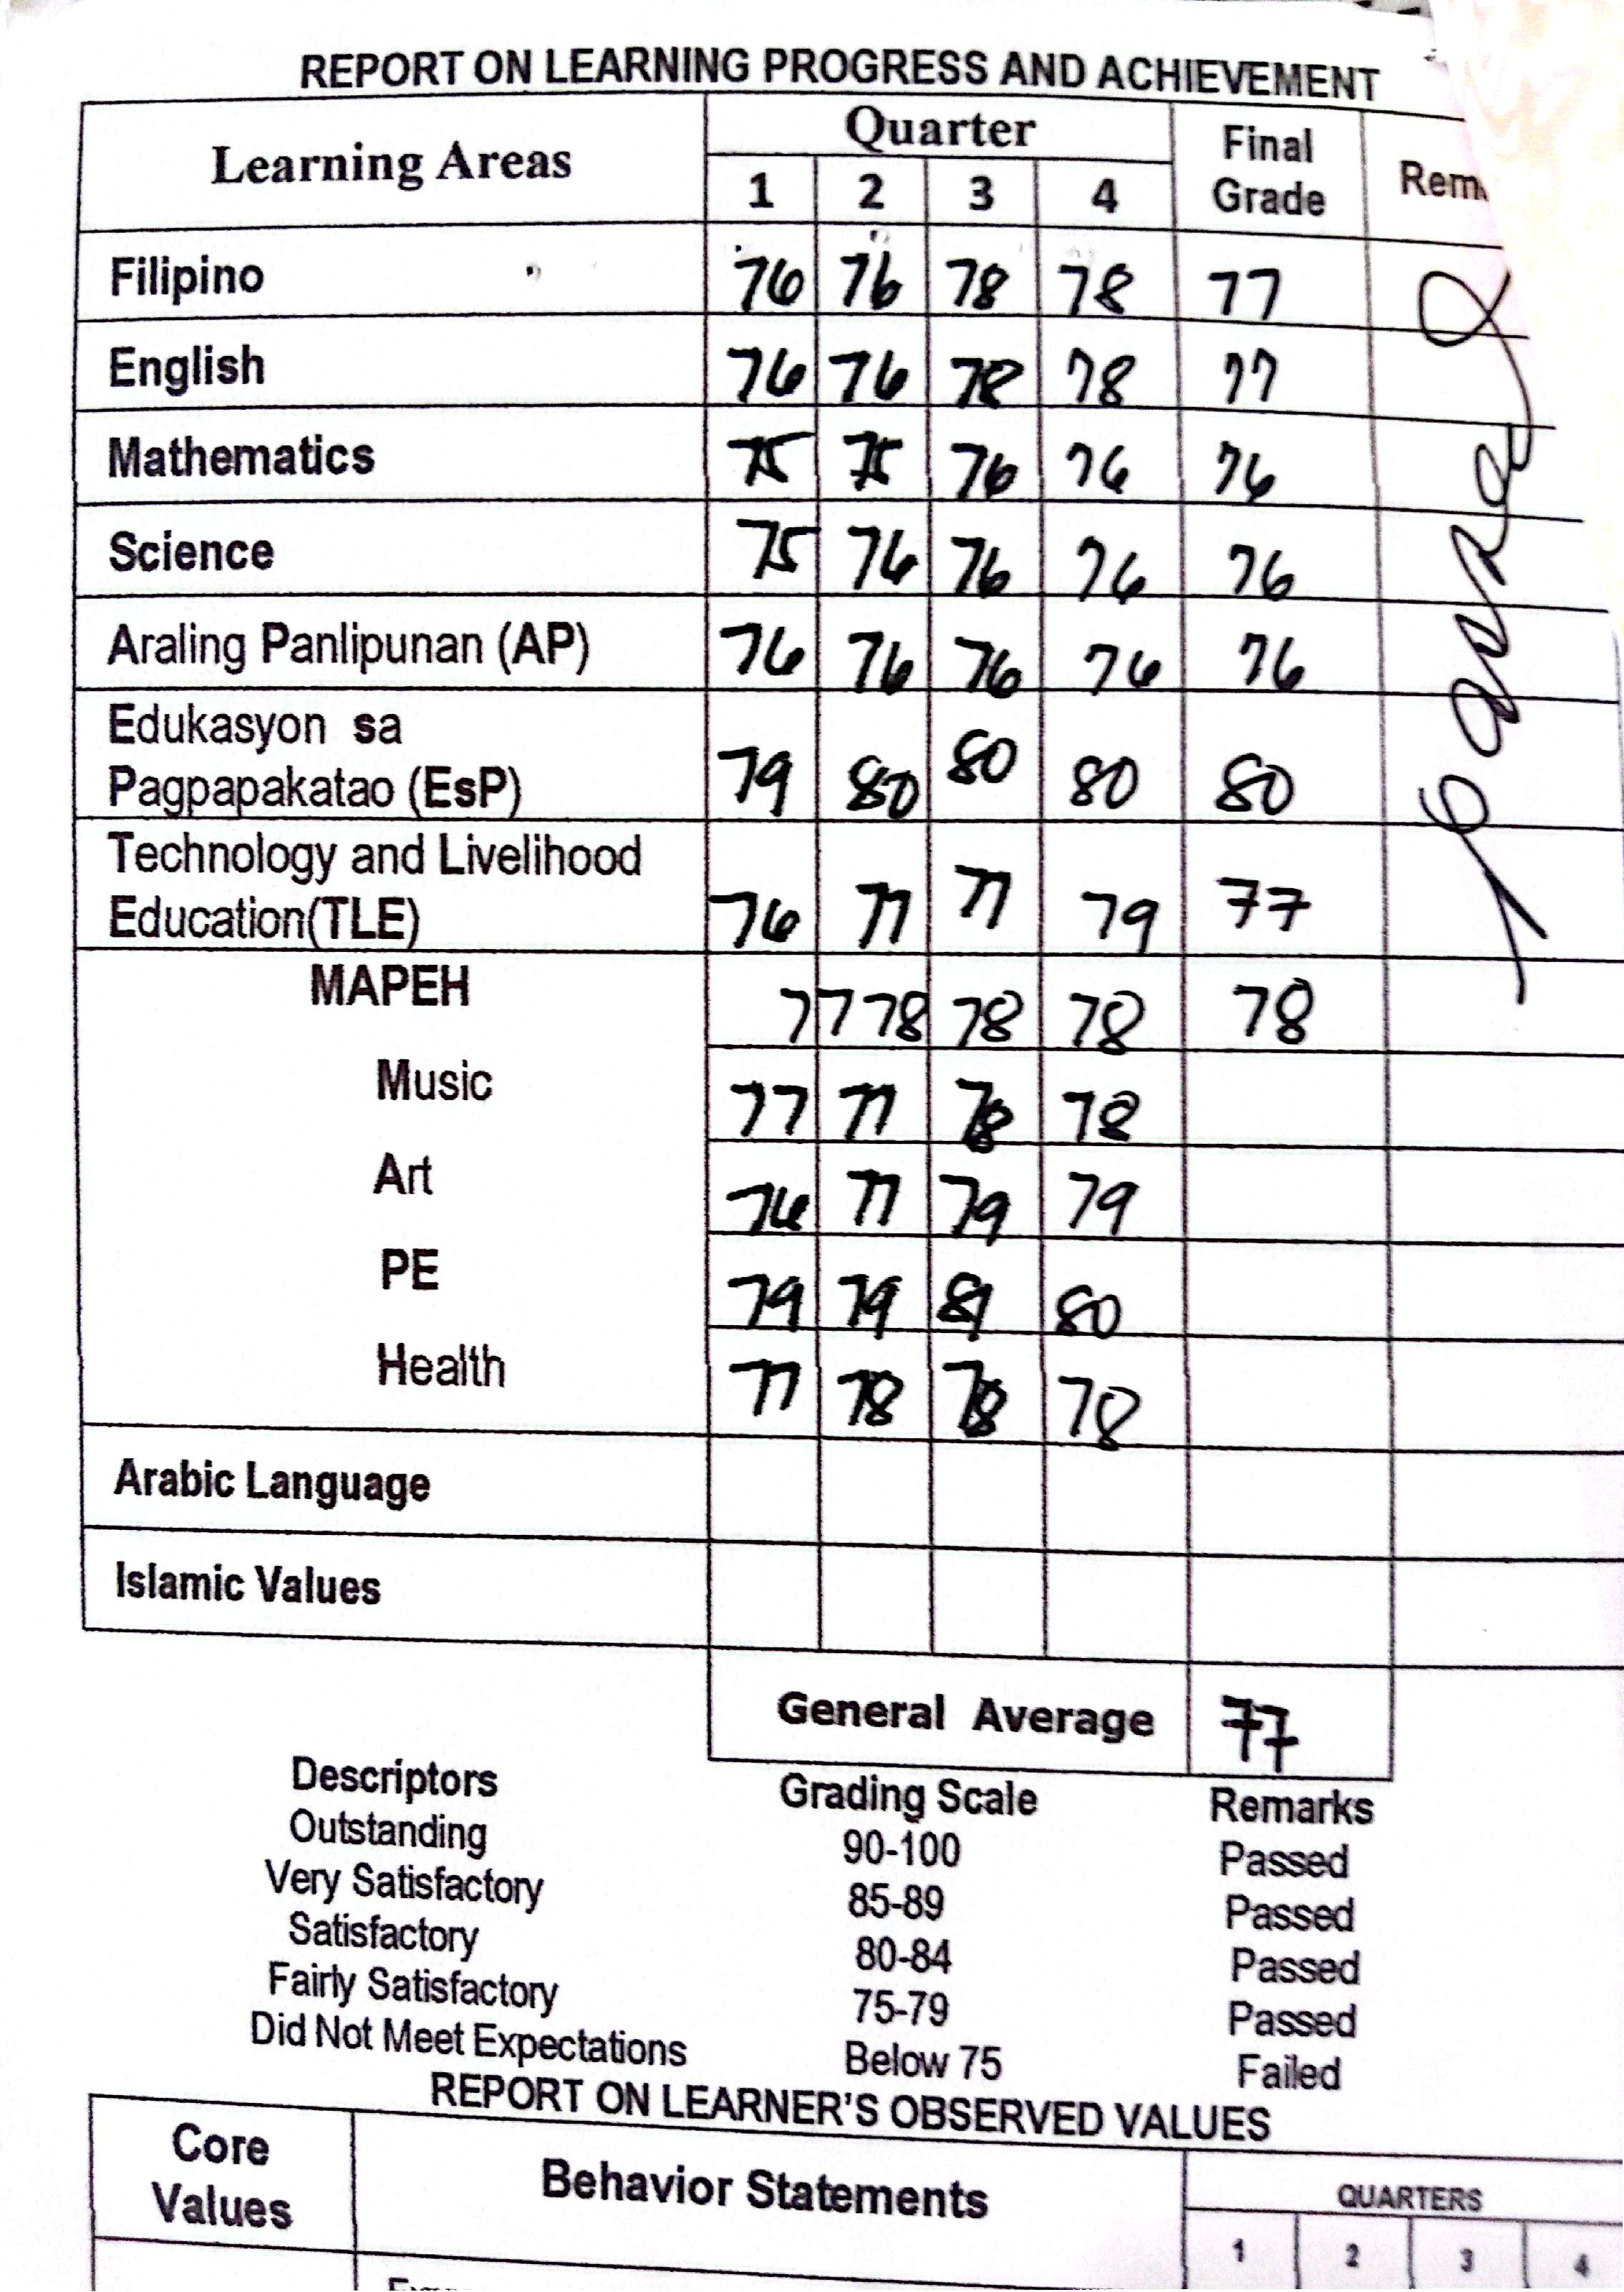 REPORT ON LEARNING PROGRESS AND ACHIEVEMENT
Learning Areas Quarter Final Grade
1 2 3 4
Filipino 76 76 78 78 77
English 76 76 78 78 77
Mathematics 75 75 76 76 76
Science 75 76 76 76 76
Araling Panlipunan (AP) 76 76 76 76 76
Edukasyon sa
Pagpapakatao (EsP) 79 80 80 80 80
Technology and Livelihood
Education(TLE) 76 77 77 79 77
MAPEH 77 78 78 78 78
Music 77 77 78 78
Art 76 77 79 79
PE 79 79 81 80
Health 77 78 78 78
Arabic Language
Islamic Values
General Average 77
Descriptors Grading Scale Remarks
Outstanding 90-100 Passed
Very Satisfactory 85-89 Passed
Satisfactory 80-84 Passed
Fairly Satisfactory 75-79 Passed
Did Not Meet Expectations Below 75 Failed
REPORT ON LEARNER'S OBSERVED VALUES
Core Values Behavior Statements QUARTERS
1 2 3 4